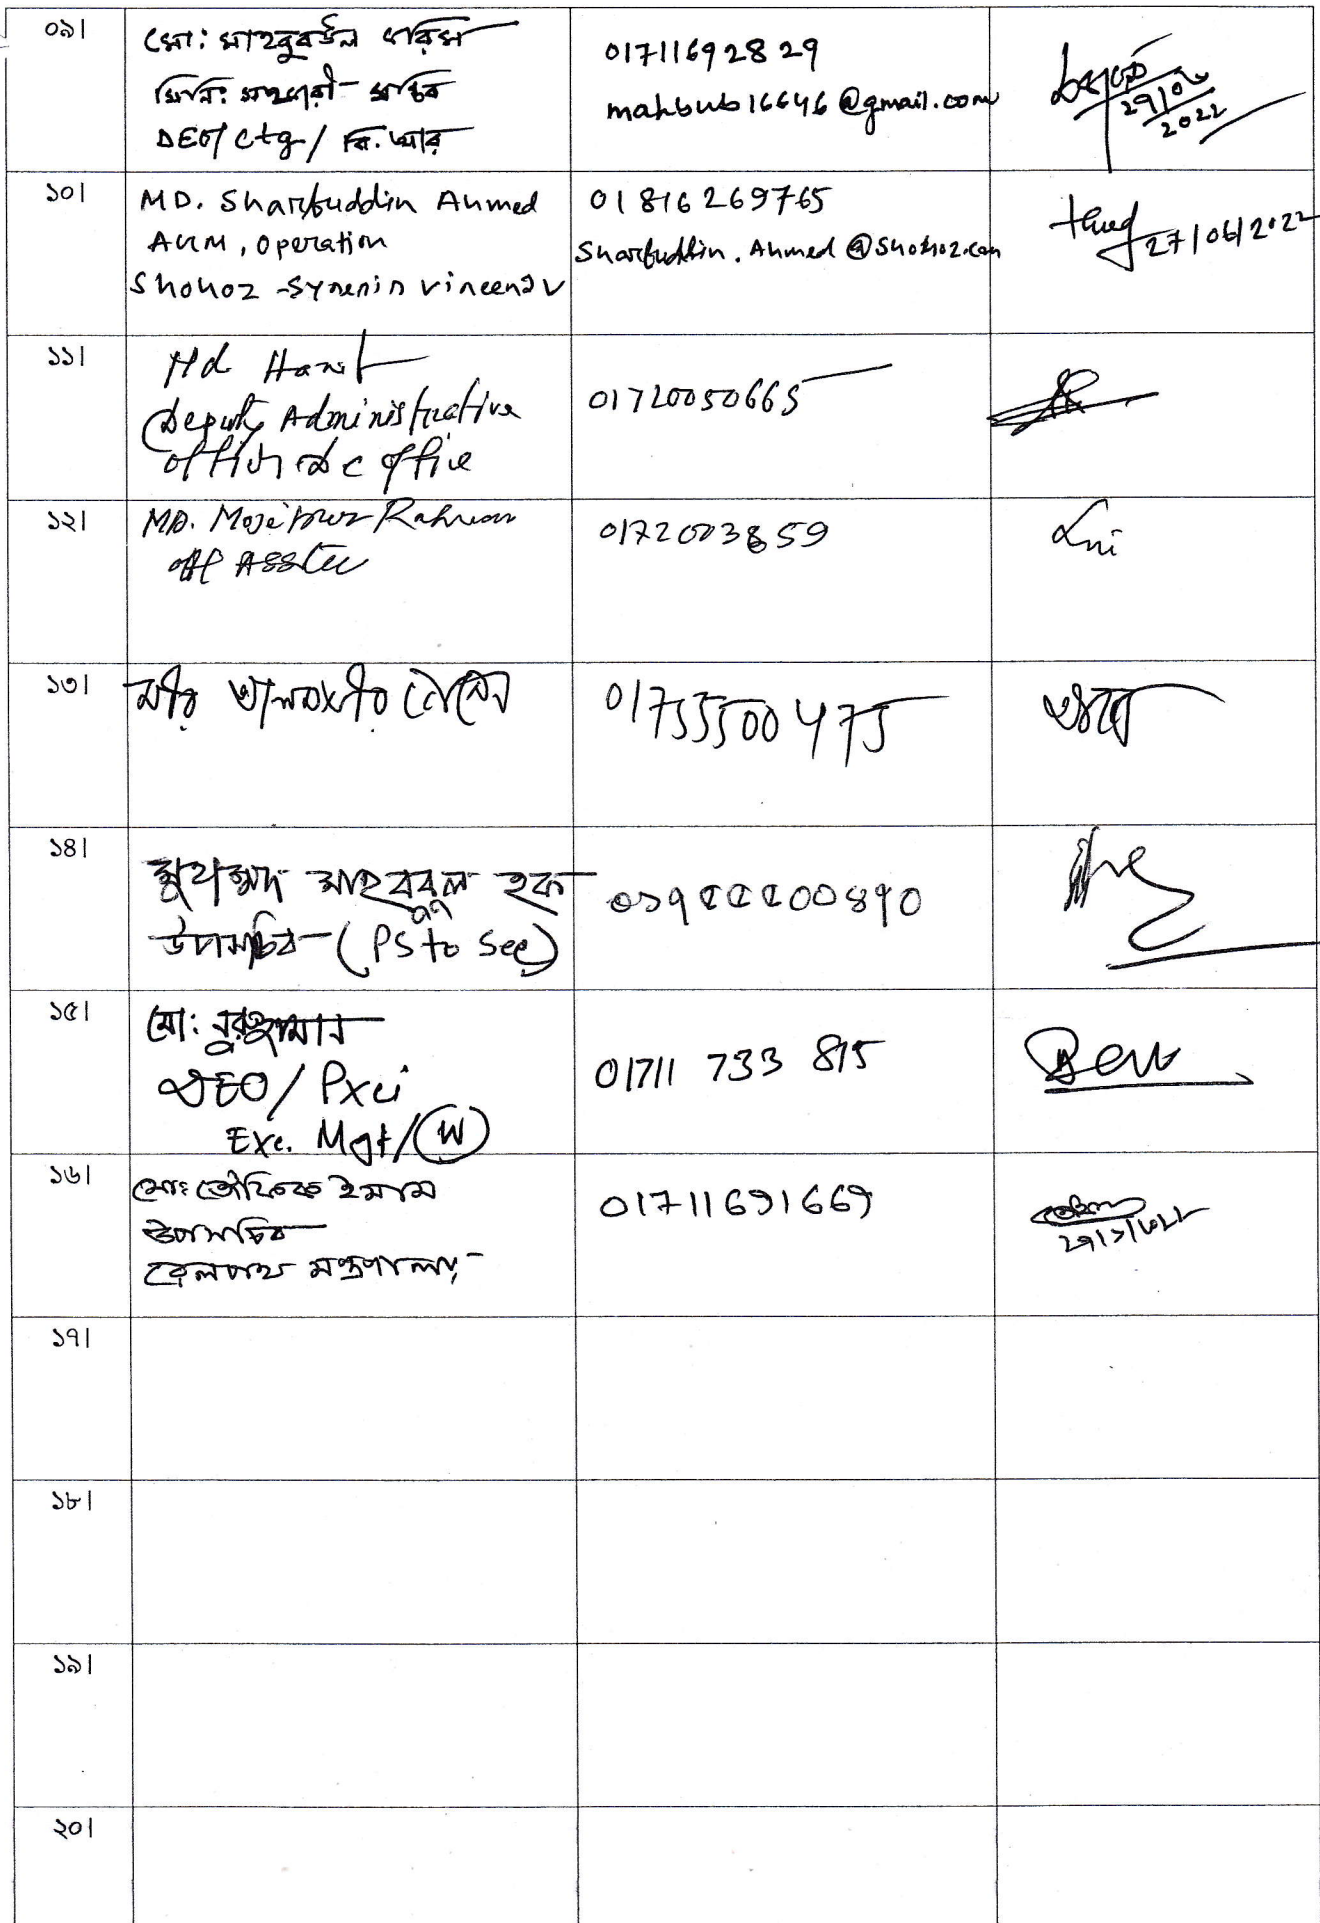 ০৯। মো: মাহবুবউল করিম
সিনি: সহকারী সচিব
DEO/ctg/ বি.আর
01711692829
mahbub16646@gmail.com
2022
১০। MD. Sharfuddin Ahmed
AGM, Operation
Shohoz-Synesis vincen JV
01816269765
Sharfuddin.Ahmed@Shohoz.com
27/06/2022
১১। Md Hanif
Deputy Administrative
officer DC office
01720050665
১২। MD. Mojibur Rahman
off Asstt
0172003859
১৩। মীর আলমগীর হোসেন
01755500475
১৪। মুহাম্মদ মাহবুবুল হক
উপসচিব (PS to Sec)
০১৭৫৫৫০০৪৭০
১৫। মো: নুরুজ্জামান
DEO/Pxci
Exe. Mgt/(W)
01711 733 815
১৬। মোঃ তৌফিক ইমাম
উপসচিব
রেলপথ মন্ত্রণালয়
01711691669
১৭।
১৮।
১৯।
২০।